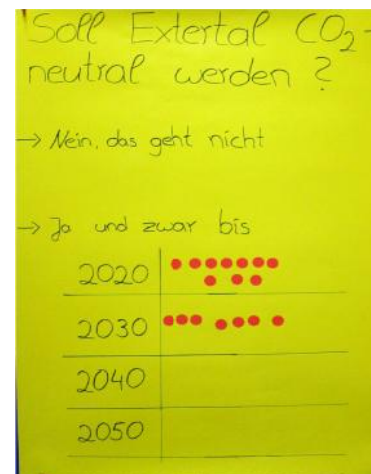 Soll Extertal CO₂-
neutral werden ?
→ Nein, das geht nicht
→ Ja und zwar bis
2020
2030
2040
2050